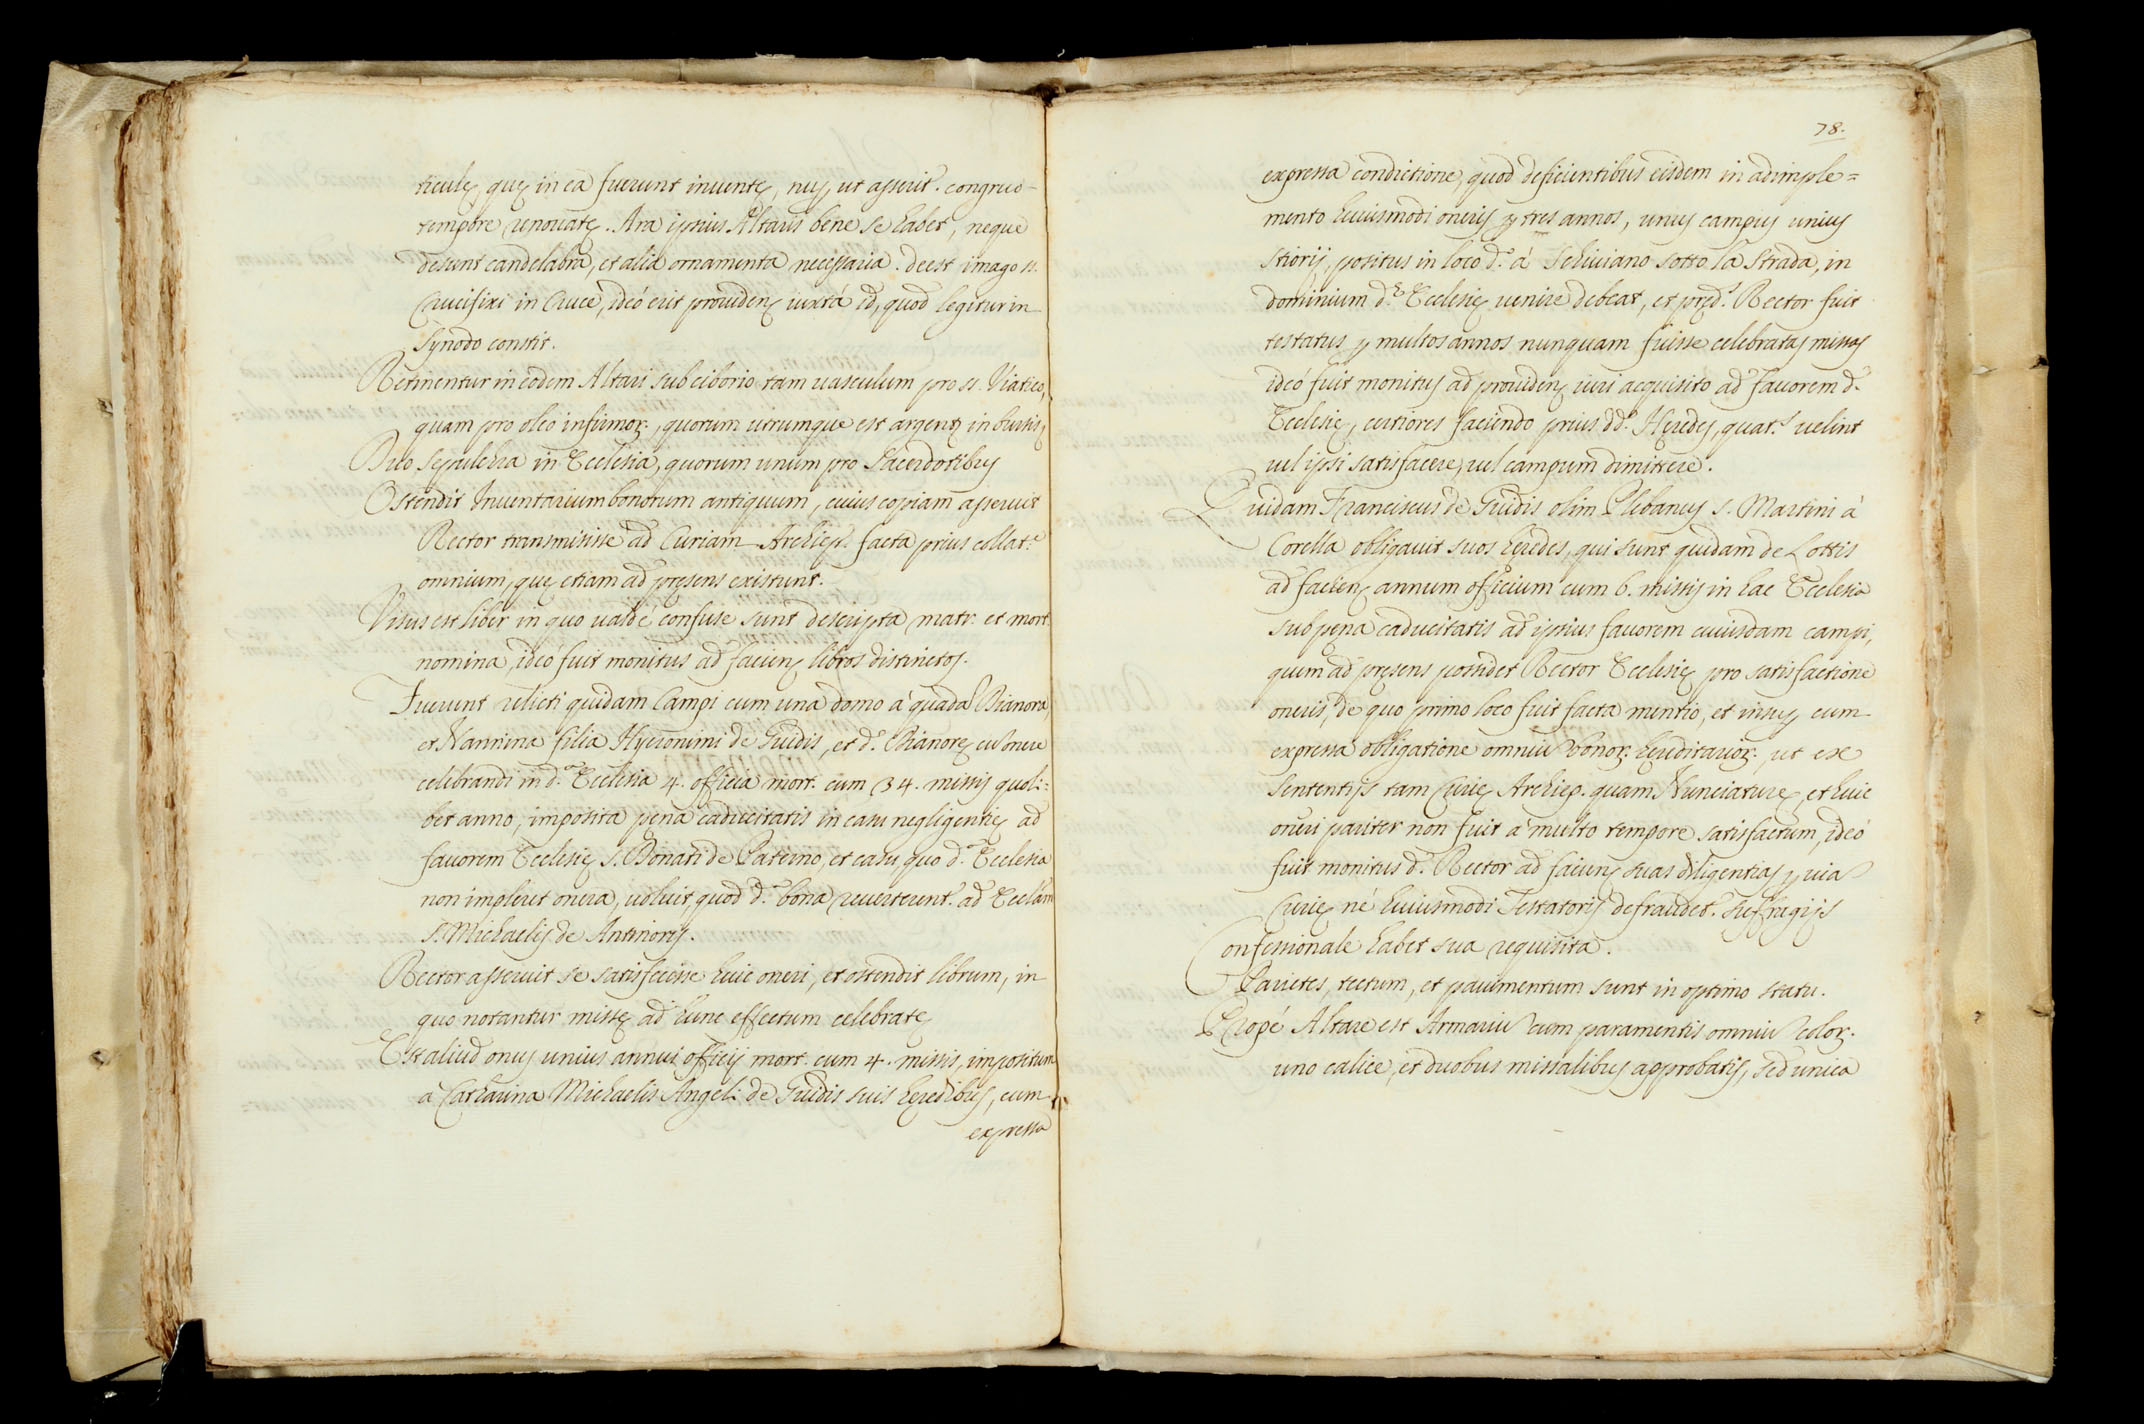 ticulę, quę in ea fuerunt inuentę, nuṣ, ut asserit. congruo
tempore renouatę. Ara ipsius Altaris bene se habet, neque
desunt candelabra, et alia ornamenta necessaria. deest imago SS.
Crucifixi in Cruce, ideó erit prouidenḍ iuxtá id, quod legitur in
Synodo constit.
Retinentur in eodem Altari sub ciborio tam uasculum pro SS. Viatico,
quam pro oleo infirmoꝝ, quorum utrumque est argenteum in bursis
Duo sepulchra in Ecclesia, quorum unum pro Sacerdotibus
Ostendit Inuentarium bonorum antiquum, cuius copiam asseruit
Rector transmisisse ad Curiam Archiep. facta prius collat.e
omnium, quę etiam ad pręsens existunt.
Visus est liber in quo ualdé confuse sunt descripta matr. et mort.
nomina, ideó fuit monitus ad facienḍ libros distinctos.
Fuerunt relicti quidam Campi cum una domo á quadā Dianora,
et Nannina filia Hyeronimi de Guidis, et d.ᵃ Dianorę cū onere
celebrandi in d.ᵃ Ecclesia 4. officia mort. cum 34. missis quoli:
bet anno, imposita pęna caducitatis in casu negligentię ad
fauorem Ecclesię S. Donati de Paterno, et casu, quo d.ᵃ Ecclesia
non impleret onera, uoluit, quod d.ᵃ bona reuerterent. ad Eccłam
S. Michaelis de Antinoris.
Rector asseruit se satisfecisse huic oneri, et ostendit librum, in
quo notantur missę ad hunc effectum celebratę
Est aliud onus unius annui officij mort. cum 4. missis, impositum
a Catharina Michaelis Angeli de Guidis suis hęredibus, cum
expressa
78.
expressa condictione, quod deficientibus eisdem in adimple=
mento huiusmodi oneris ꝑ tres annos, unus campus unius
Stiorij, positus in loco d.º á Schiuiano sotto la Strada, in
dominium d.ę Ecclesię uenire debeat, et pręd.s Rector fuit
testatus ꝑ multos annos nunquam fuisse celebratas missas
ideó fuit monitus ad prouidenḍ iuri acquisito ad fauorem d.ę
Ecclesię, certiores faciendo prius dd.os Hęredes, quat.s uelint
uel ipsi satisfacere, uel campum dimittere.
Quidam Franciscus de Guidis olim Plebanus S. Martini á
Corella obligauit suos hęredes, qui sunt quidam de Lottis
ad facienḍ annuum officium cum 6. missis in hac Ecclesia
sub pęna caducitatis ad ipsius fauorem cuiusdam campi,
quem ad pręsens possidet Rector Ecclesię pro satisfactione
oneris, de quo primo loco fuit facta mentio, et insuꝑ cum
expressa obligatione omniū bonoꝝ hęreditarioꝝ, ut ex
Sententijs tam Curię Archiep. quam Nunciaturę, et huic
oneri pariter non fuit á multo tempore satisfactum, ideó
fuit monitus d.s Rector ad facienḍ suas diligentias ꝑ uia
Curię né huiusmodi Testatoris defraudet. suffragijs
Confessionale habet sua requisita.
Parietes, tectum, et pauimentum sunt in optimo statu.
Propé Altare est Armariū cum paramentis omniū coloꝝ.
uno calice, et duobus missalibus approbatis, sed unica